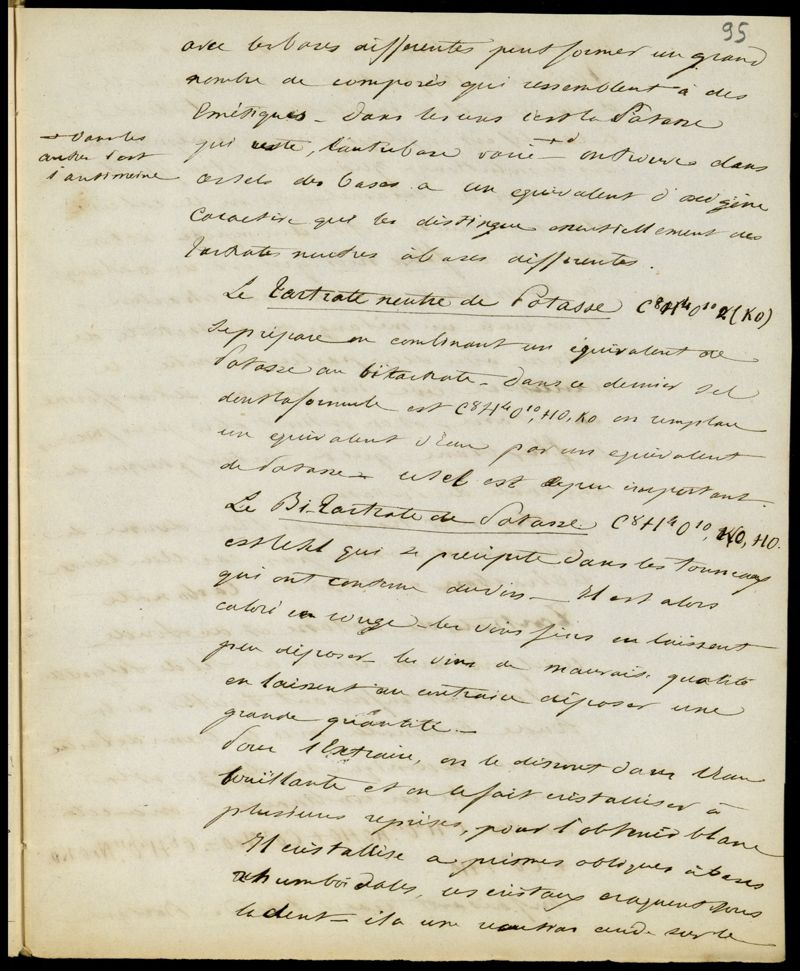 95
avec les bases differentes peut former un grand
nombre de composés qui ressemblent à des
Emétiques - Dans les uns c'est la Potasse
qui reste, l'autre base varie - on trouve dans
→ Dans les
autres c'est
l'antimoine
ces sels des bases a un equivalent d'oxigène
Caractère qui les distingue essentiellement des
tartrates neutres à bases differentes.
Le Tartrate neutre de Potasse C⁸H⁴O¹⁰ 2(KO)
se prépare en combinant un équivalent de
Potasse au bitartrate - Dans ce dernier sel
dont la formule est C⁸H⁴O¹⁰, HO, KO on remplace
un equivalent d'Eau par un equivalent
de Potasse - ce sel est de peu important.
Le Bi-Tartrate de Potasse C⁸H⁴O¹⁰, KO, HO.
est le sel qui se précipite dans les tonneaux
qui ont contenu du vin - Il est alors
coloré en rouge - les vins fins en laissent
peu déposer - les vins de mauvaise qualité
en laissent au contraire déposer une
grande quantité -
Pour l'Extraire, on le dissout dans l'Eau
bouillante et on le fait cristalliser à
plusieurs reprises, pour l'obtenir blanc
Il cristallise en prismes obliques à bases
rhumboïdales, ces cristaux craquent sous
la dent - il a une réaction acide sur le